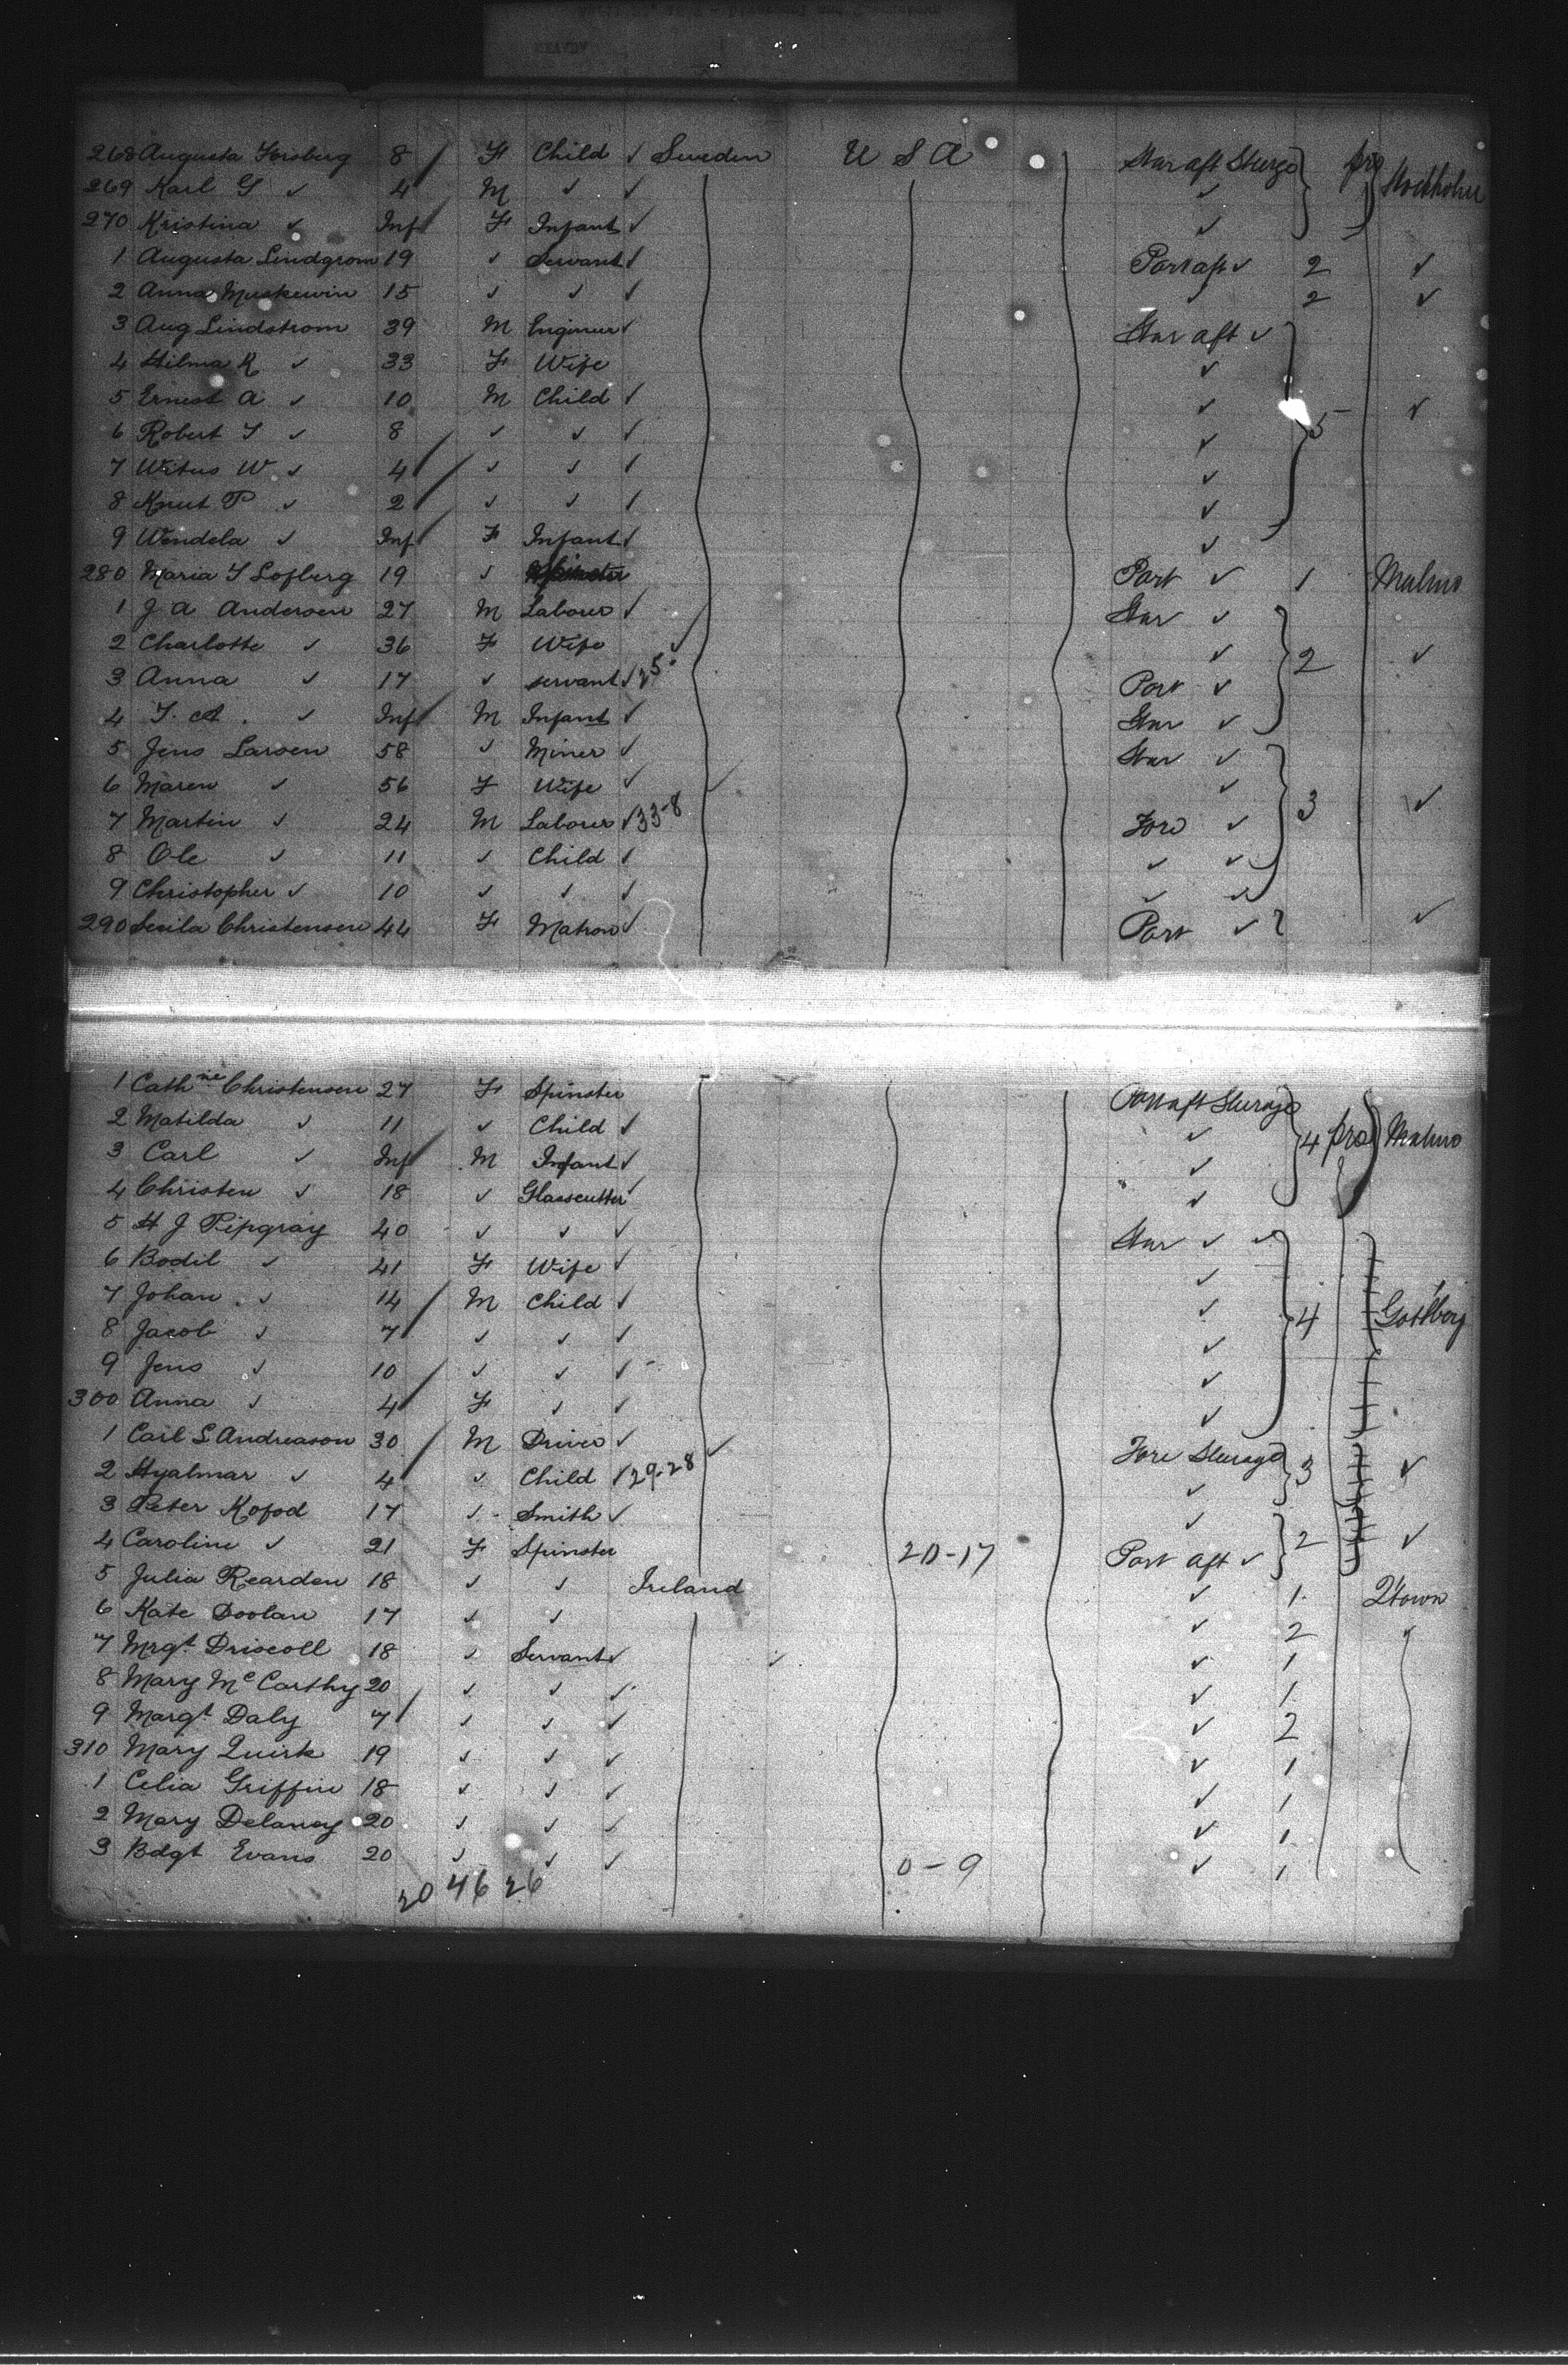 268 Augusta Forsberg 8 / F Child ✓ Sweden U S A Star aft Sterge } pro Stockholm
269 Karl G ✓ 4 M ✓ ✓ ✓
270 Kristina ✓ Inf / F Infant ✓ ✓
1 Augusta Lindgrom 19 ✓ Servant ✓ Port aft ✓ 2 ✓
2 Anna Muskewin 15 ✓ ✓ ✓ ✓ 2 ✓
3 Aug Lindstrom 39 M Engineer ✓ Star aft ✓
4 Hilma K ✓ 33 F Wife ✓
5 Ernest A ✓ 10 M Child ✓ ✓ 5 ✓
6 Robert F ✓ 8 ✓ ✓ ✓ ✓
7 Witus W ✓ 4 / ✓ ✓ ✓ ✓
8 Knut P ✓ 2 / ✓ ✓ ✓ ✓
9 Wendela ✓ Inf / F Infant ✓ ✓
280 Maria F Lofberg 19 ✓ Port ✓ 1 Malmo
1 J A Andersen 27 M Laborer ✓ Star ✓
2 Charlotte ✓ 36 F Wife ✓ ✓ 2 ✓
3 Anna ✓ 17 ✓ servant ✓ Port ✓
4 F. A. ✓ Inf / M Infant ✓ Star ✓
5 Jens Larsen 58 ✓ Miner ✓ Star ✓
6 Maren ✓ 56 F Wife ✓ ✓ 3 ✓
7 Martin ✓ 24 M Laborer ✓ 33-8 Fore ✓
8 Ole ✓ 11 ✓ Child ✓ ✓ ✓
9 Christopher ✓ 10 ✓ ✓ ✓ ✓ ✓
290 Secila Christensen 44 F Matron ✓ Port ✓ ✓
1 Cathne Christensen 27 F Spinster Port aft Sterage } 4 pro } Malmo
2 Matilda ✓ 11 ✓ Child ✓ ✓
3 Carl ✓ Inf / M Infant ✓ ✓
4 Christen ✓ 18 ✓ Glasscutter ✓ ✓
5 H J Pipgray 40 ✓ ✓ ✓ Star ✓ ✓
6 Bodil ✓ 41 F Wife ✓ ✓
7 Johan ✓ 14 / M Child ✓ ✓ 4 Gothberg
8 Jacob ✓ 7 / ✓ ✓ ✓ ✓
9 Jens ✓ 10 ✓ ✓ ✓ ✓
300 Anna ✓ 4 / F ✓ ✓ ✓
1 Carl S Andreason 30 / M Driver ✓ Fore Sterage } 3 ✓
2 Hyalmar ✓ 4 / ✓ Child ✓ 29-28 ✓
3 Peter Kofod 17 ✓ Smith ✓ ✓ 2 ✓
4 Caroline ✓ 21 F Spinster 20-17 Port aft ✓
5 Julia Rearden 18 ✓ ✓ Ireland ✓ 1 Qtown
6 Kate Doolan 17 ✓ ✓ ✓ 2 ✓
7 Mrgt Driscoll 18 ✓ Servant ✓ ✓ 1
8 Mary McCarthy 20 ✓ ✓ ✓ ✓ 1
9 Margt Daly 7 / ✓ ✓ ✓ ✓ 2
310 Mary Quirk 19 ✓ ✓ ✓ ✓ 1
1 Celia Griffin 18 ✓ ✓ ✓ ✓ 1
2 Mary Delaney 20 ✓ ✓ ✓ ✓ 1
3 Bdgt Evans 20 ✓ ✓ ✓ 0-9 ✓ 1
20 46 26